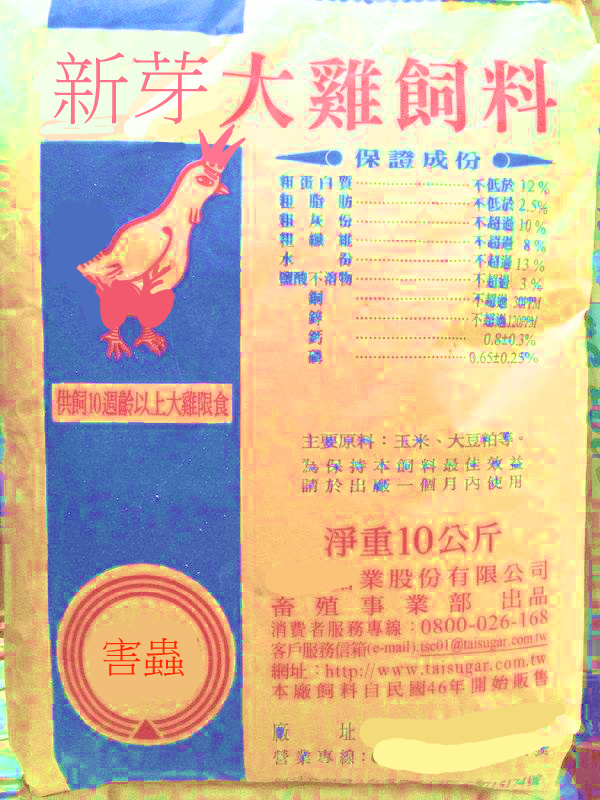 新芽大雞飼料
保證成份
粗蛋白質 不低於 12%
粗脂肪 不低於 2.5%
粗灰份 不超過 10%
粗纖維 不超過 8%
水份 不超過 13%
鹽酸不溶物 不超過 3%
銅 不超過 30PPM
鋅 不超過 120PPM
鈣 0.8±0.3%
磷 0.65±0.25%
供飼10週齡以上大雞限食
主要原料：玉米、大豆粕等。
為保持本飼料最佳效益
請於出廠一個月內使用
淨重10公斤
業股份有限公司
畜殖事業部 出品
消費者服務專線：0800-026-168
客戶服務信箱(e-mail):tsc01@taisugar.com.tw
網址：http://www.taisugar.com.tw
本廠飼料自民國46年開始販售
害蟲
廠址
營業專線：
號